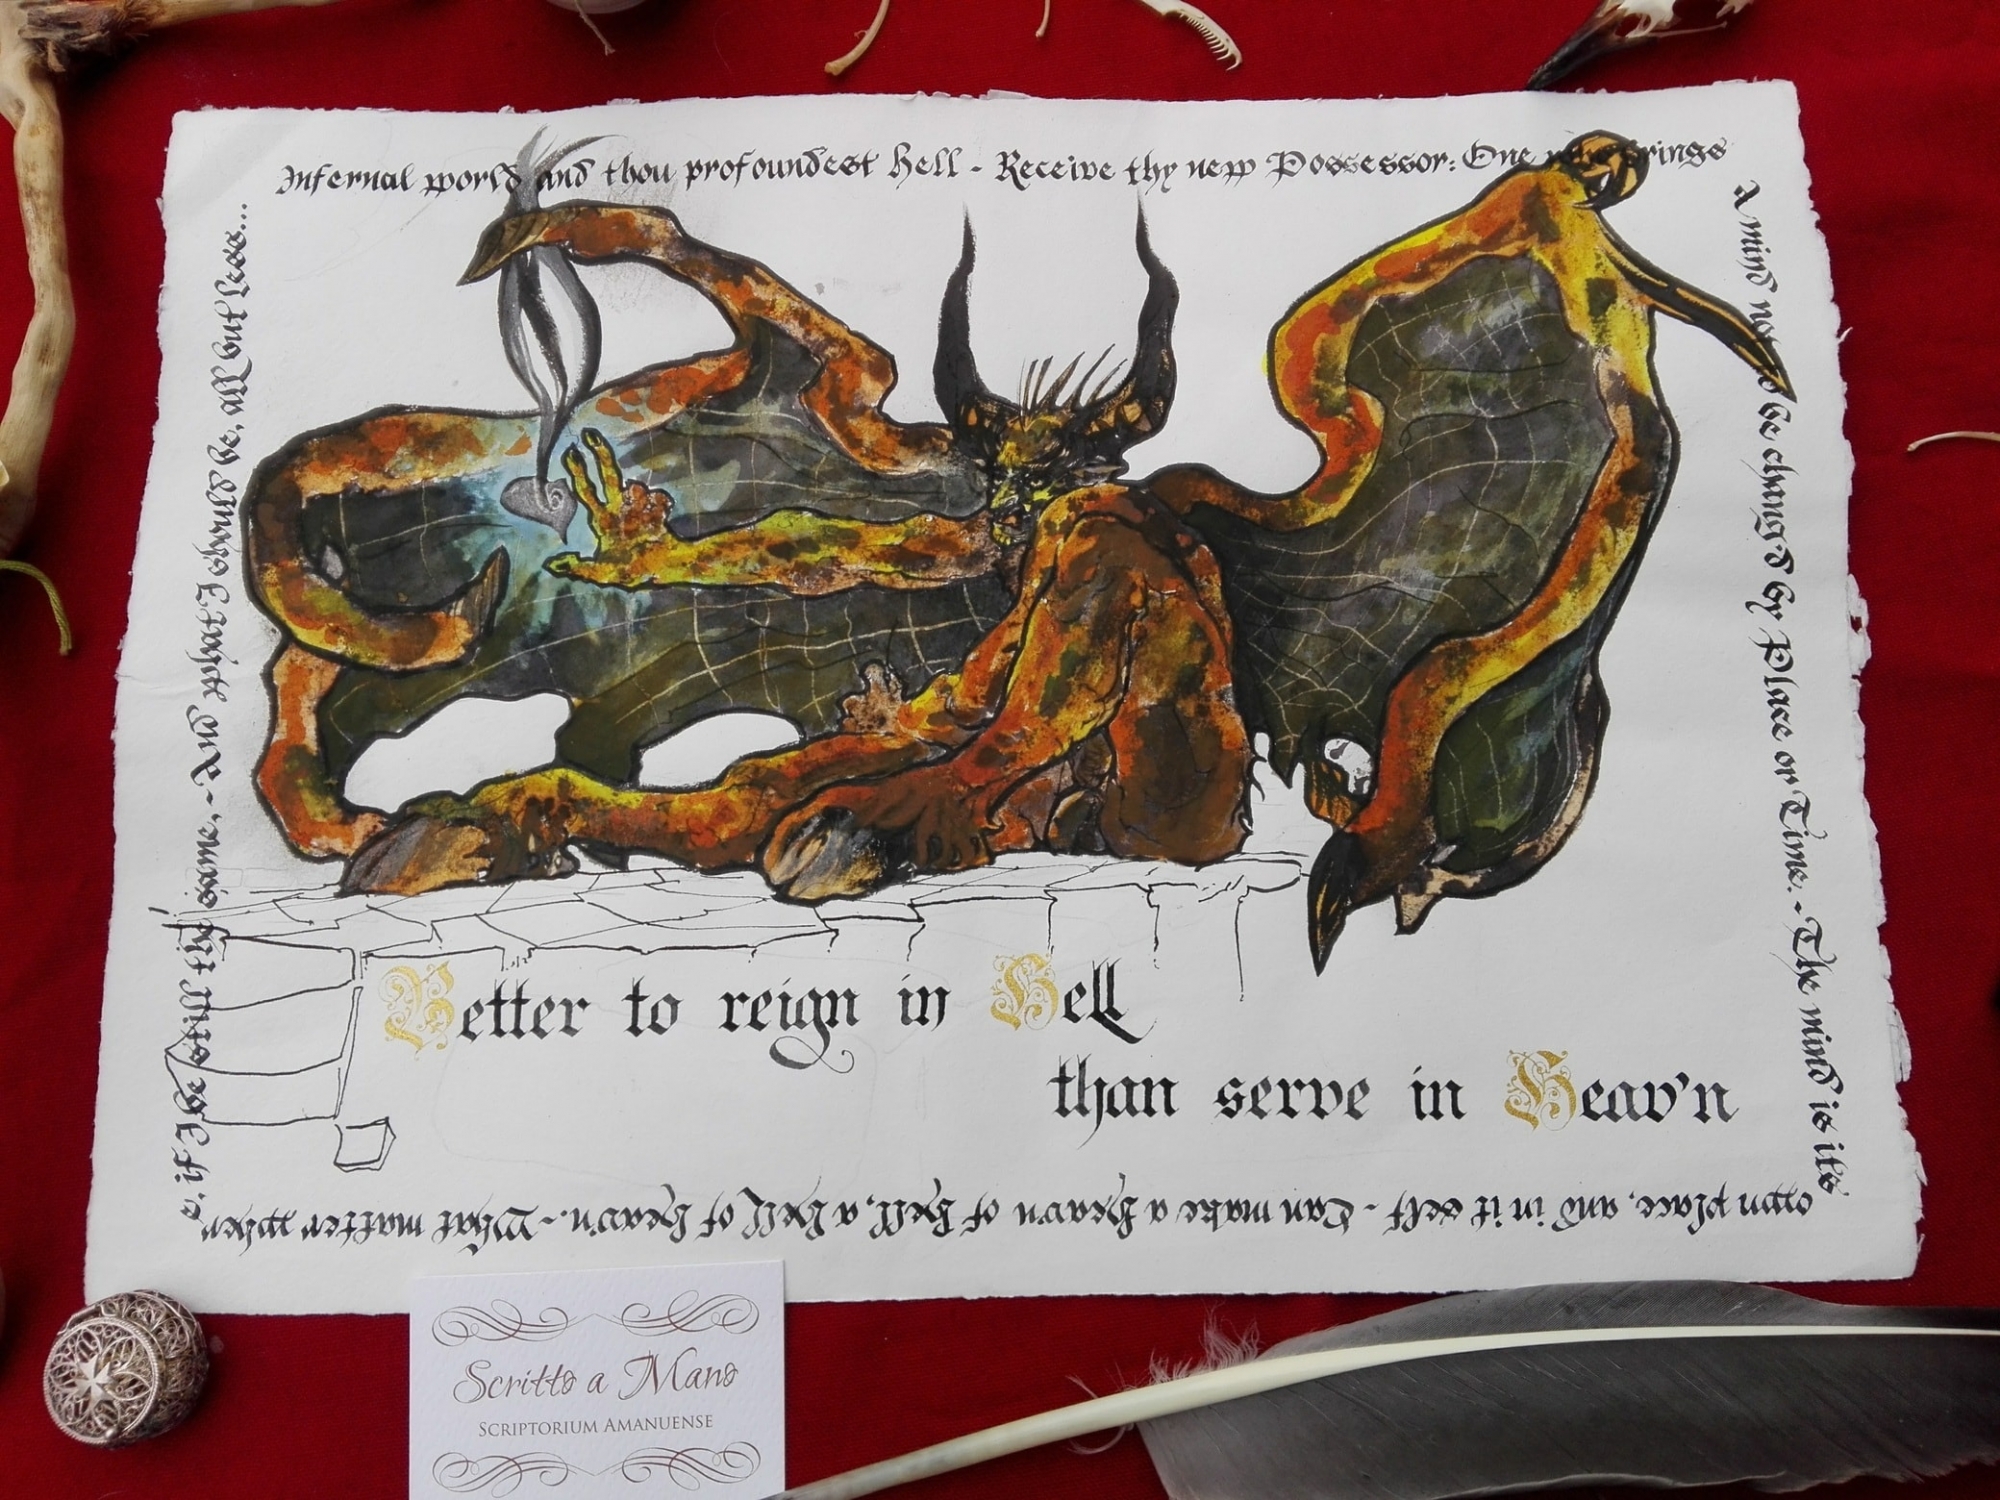 Infernal world and thou profoundest Hell - Receive thy new Possessor: One who brings
A mind not to be chang'd by Place or Time. - The mind is its
own place, and in it self - Can make a Heav'n of Hell, a hell of heav'n. - What matter wher
e, if I be still the same, - And what I should be, all but less...
Better to reign in Hell
than serve in Heav'n
Scritto a Mano
SCRIPTORIUM AMANUENSE